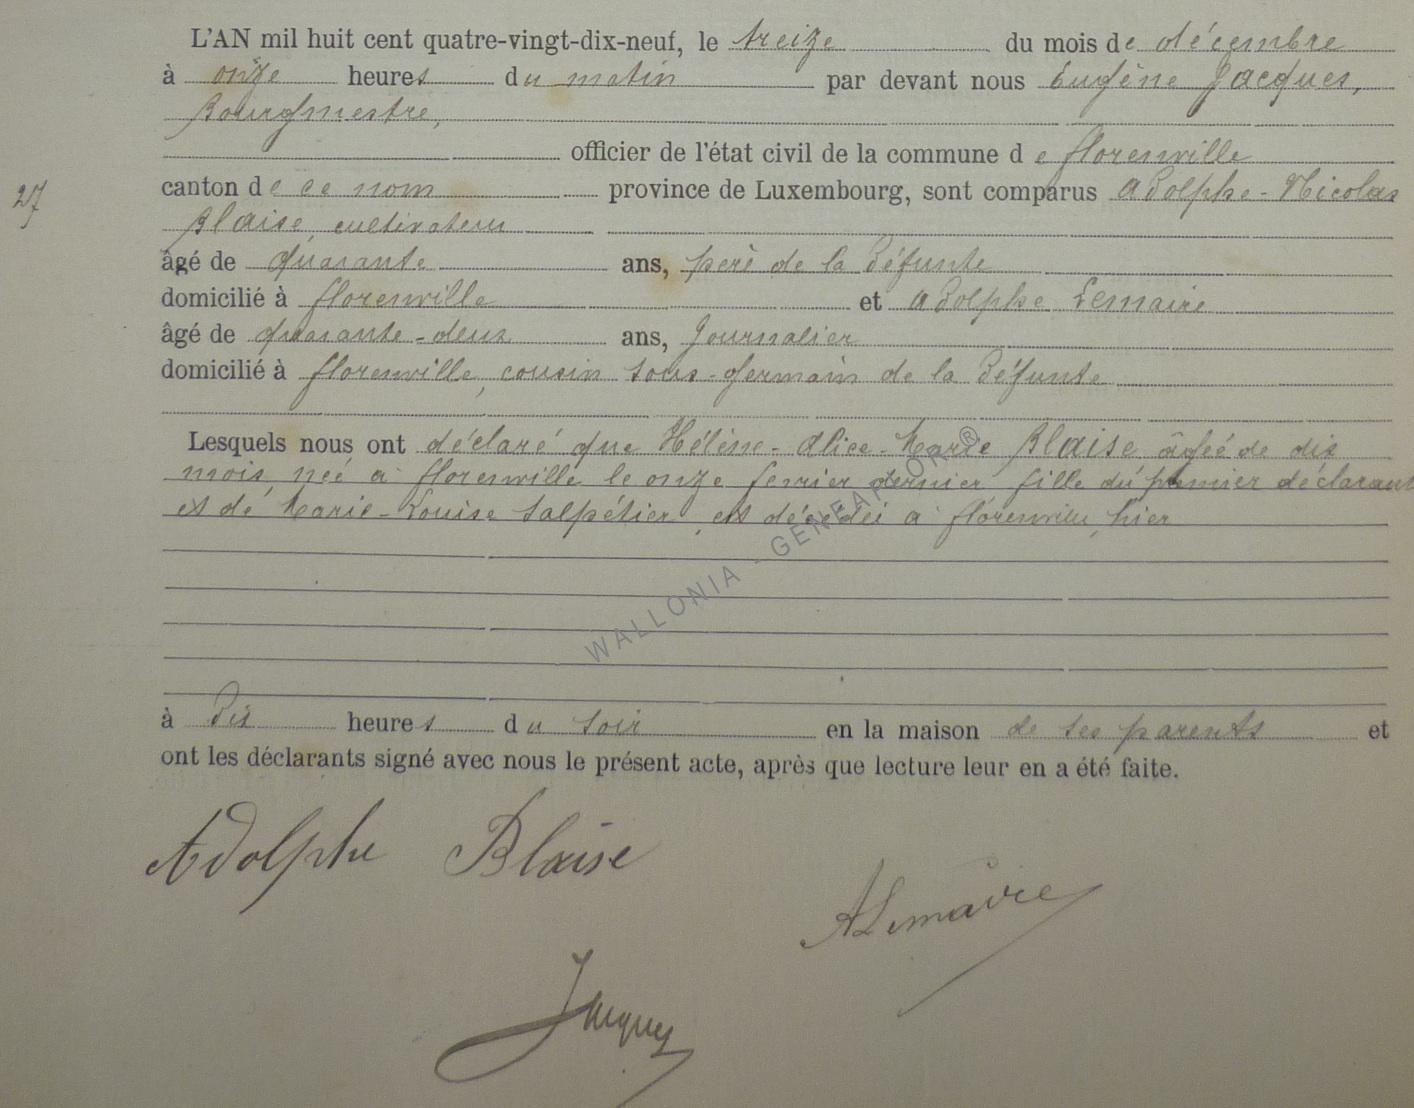 L'AN mil huit cent quatre-vingt-dix-neuf, le treize du mois de décembre
à onze heures du matin par devant nous Eugène Jacques,
Bourgmestre,
officier de l'état civil de la commune de florenville
27
canton de ce nom province de Luxembourg, sont comparus Adolphe-Nicolas
Blaise, cultivateur
âgé de quarante ans, père de la défunte
domicilié à florenville et Adolphe Lemaire
âgé de quarante-deux ans, Journalier
domicilié à florenville, cousin sous-germain de la défunte
Lesquels nous ont déclaré que Hélène-Alice-Marie Blaise âgée de dix
mois, née à florenville le onze fevrier dernier fille du premier déclarant
et de Marie-Louise Salpétier, est décédéi à florenville, hier
WALLONIA - GENEAPHOR®
à dix heures du soir en la maison de ses parents et
ont les déclarants signé avec nous le présent acte, après que lecture leur en a été faite.
Adolphe Blaise
ALemaire
Jacques